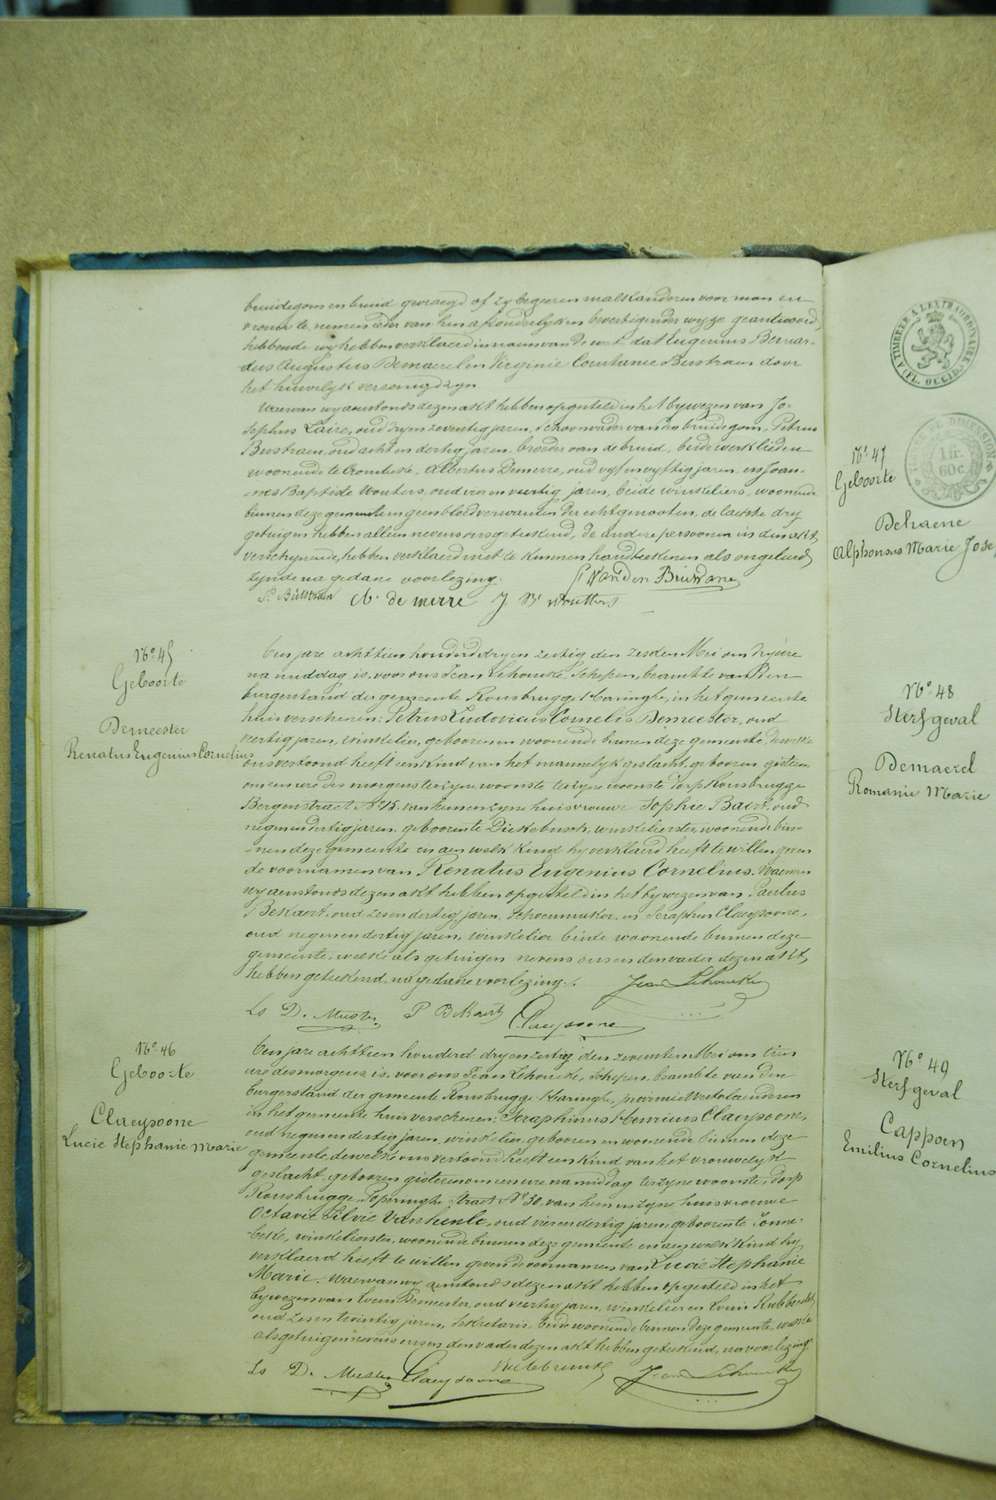 bruidegom en bruid gevraegd of zy begeeren malkanderen voor man en
vrouw te nemen, elk van hen afzonderlyk en bevestigender wyze geantwoord
hebbende wy hebben verklaerd in naem van de wet dat Eugenius Bernar-
dus Augustus Demaerel en Virginie Constance Bustraen door
het huwelyk vereenigd zyn
Waervan wy aenstonds dezen akt hebben opgesteld in het bywezen van Jo-
sephus Laire, oud dryenzeventig jaren, schoonvader van den bruidegom, Petrus
Bustraen, oud achtendertig jaren, broeder van de bruid, beide werklieden
woonende te Crombeke, Albertus Demerre, oud vyfenvyftig jaren, en Joan-
nes Baptiste Wouters, oud veertig jaren, beide winkeliers, woonende
binnen deze gemeente en geen bloedverwanten der echtgenooten, de laetste dry
getuigen hebben alleen nevens ons geteekend, de andere persoonen in dezen akt
verschynende, hebben verklaerd niet te kunnen handteekenen als ongeleerd
zynde na gedane voorlezing.
P. Bustraen A. de merre J Bt Wouters
N° 45
Geboorte
Demeester
Renatus Eugenius Cornelius
Een jare achttien honderd dryenzestig den zesden Mei om dry ure
na middag is voor ons Jean Lehoucke, Schepen, beambte van den
burgerstand der gemeente Rousbrugge-Haringhe, in het gemeente
huis verschenen: Petrus Ludovicus Cornelis Demeester, oud
veertig jaren, winkelier, geboren en woonende binnen deze gemeente, dewelke
ons vertoond heeft een kind van het mannelyk geslacht, geboren gisteren
om een ure des morgens ter zyne woonste dorp Rousbrugge
Bergenstraet N° 15 van hem en zyne huisvrouwe Sophie Baert, oud
negenendertig jaren, geboren te Dickebusch, winkelierster, woonende bin-
nen deze gemeente en aen welk kind hy verklaerd heeft te willen geven
de voornamen van Renatus Eugenius Cornelius. Waervan
wy aenstonds dezen akt hebben opgesteld in het bywezen van Paulus
Bekaert, oud zesendertig jaren, Schoenmaker, en Seraphin Claeysoone,
oud negenendertig jaren, winkelier beide woonende binnen deze
gemeente, welke als getuigen nevens ons en den vader dezen akt
hebben geteekend na gedane voorlezing. Jean Lehoucke
Ls D. Mester P Bekaert Claeysoone
N° 46
Geboorte
Claeysoone
Lucie Stephanie Marie
Een jare achttien honderd dryenzestig den zevensten Mei om tien
ure des morgens is voor ons Jean Lehoucke, Schepen, beambte van den
burgerstand der gemeente Rousbrugge-Haringhe, provincie Westvlaenderen
in het gemeente huis verschenen: Seraphinus Henricus Claeysoone,
oud negenendertig jaren, winkelier, geboren en woonende binnen deze
gemeente, dewelke ons vertoond heeft een kind van het vrouwelyk
geslacht, geboren gisteren om een ure na middag ter zyne woonste, dorp
Rousbrugge, Poperinghe straet N° 30, van hem en zyne huisvrouwe
Octavie Silvie Vanheule, oud vierendertig jaren, geboren te Vonne-
beke, winkelierster, woonende binnen deze gemeente en aen welk kind hy
verklaerd heeft te willen geven de voornamen van Lucie Stephanie
Marie. Waervan wy aenstonds dezen akt hebben opgesteld in het
bywezen van Louis Demeester, oud veertig jaren, winkelier en Louis Rubbrecht,
oud zesentwintig jaren, Sekretaris beide woonende binnen deze gemeente, welke
als getuigen nevens ons en den vader dezen akt hebben geteekend, na voorlezing
Ls D. Mester Claeysoone Jean Lehoucke
TIMBRE A L'EXTRAORDINAIRE
(FL. OCCID.)
TIMBRE DE DIMENSION
1 fr.
60 c.
N° 47
Geboorte
Dehaene
Alphonsus Marie Jose
N° 48
Sterfgeval
Demaerel
Romanie Marie
N° 49
Sterfgeval
Cappoen
Emilius Cornelius